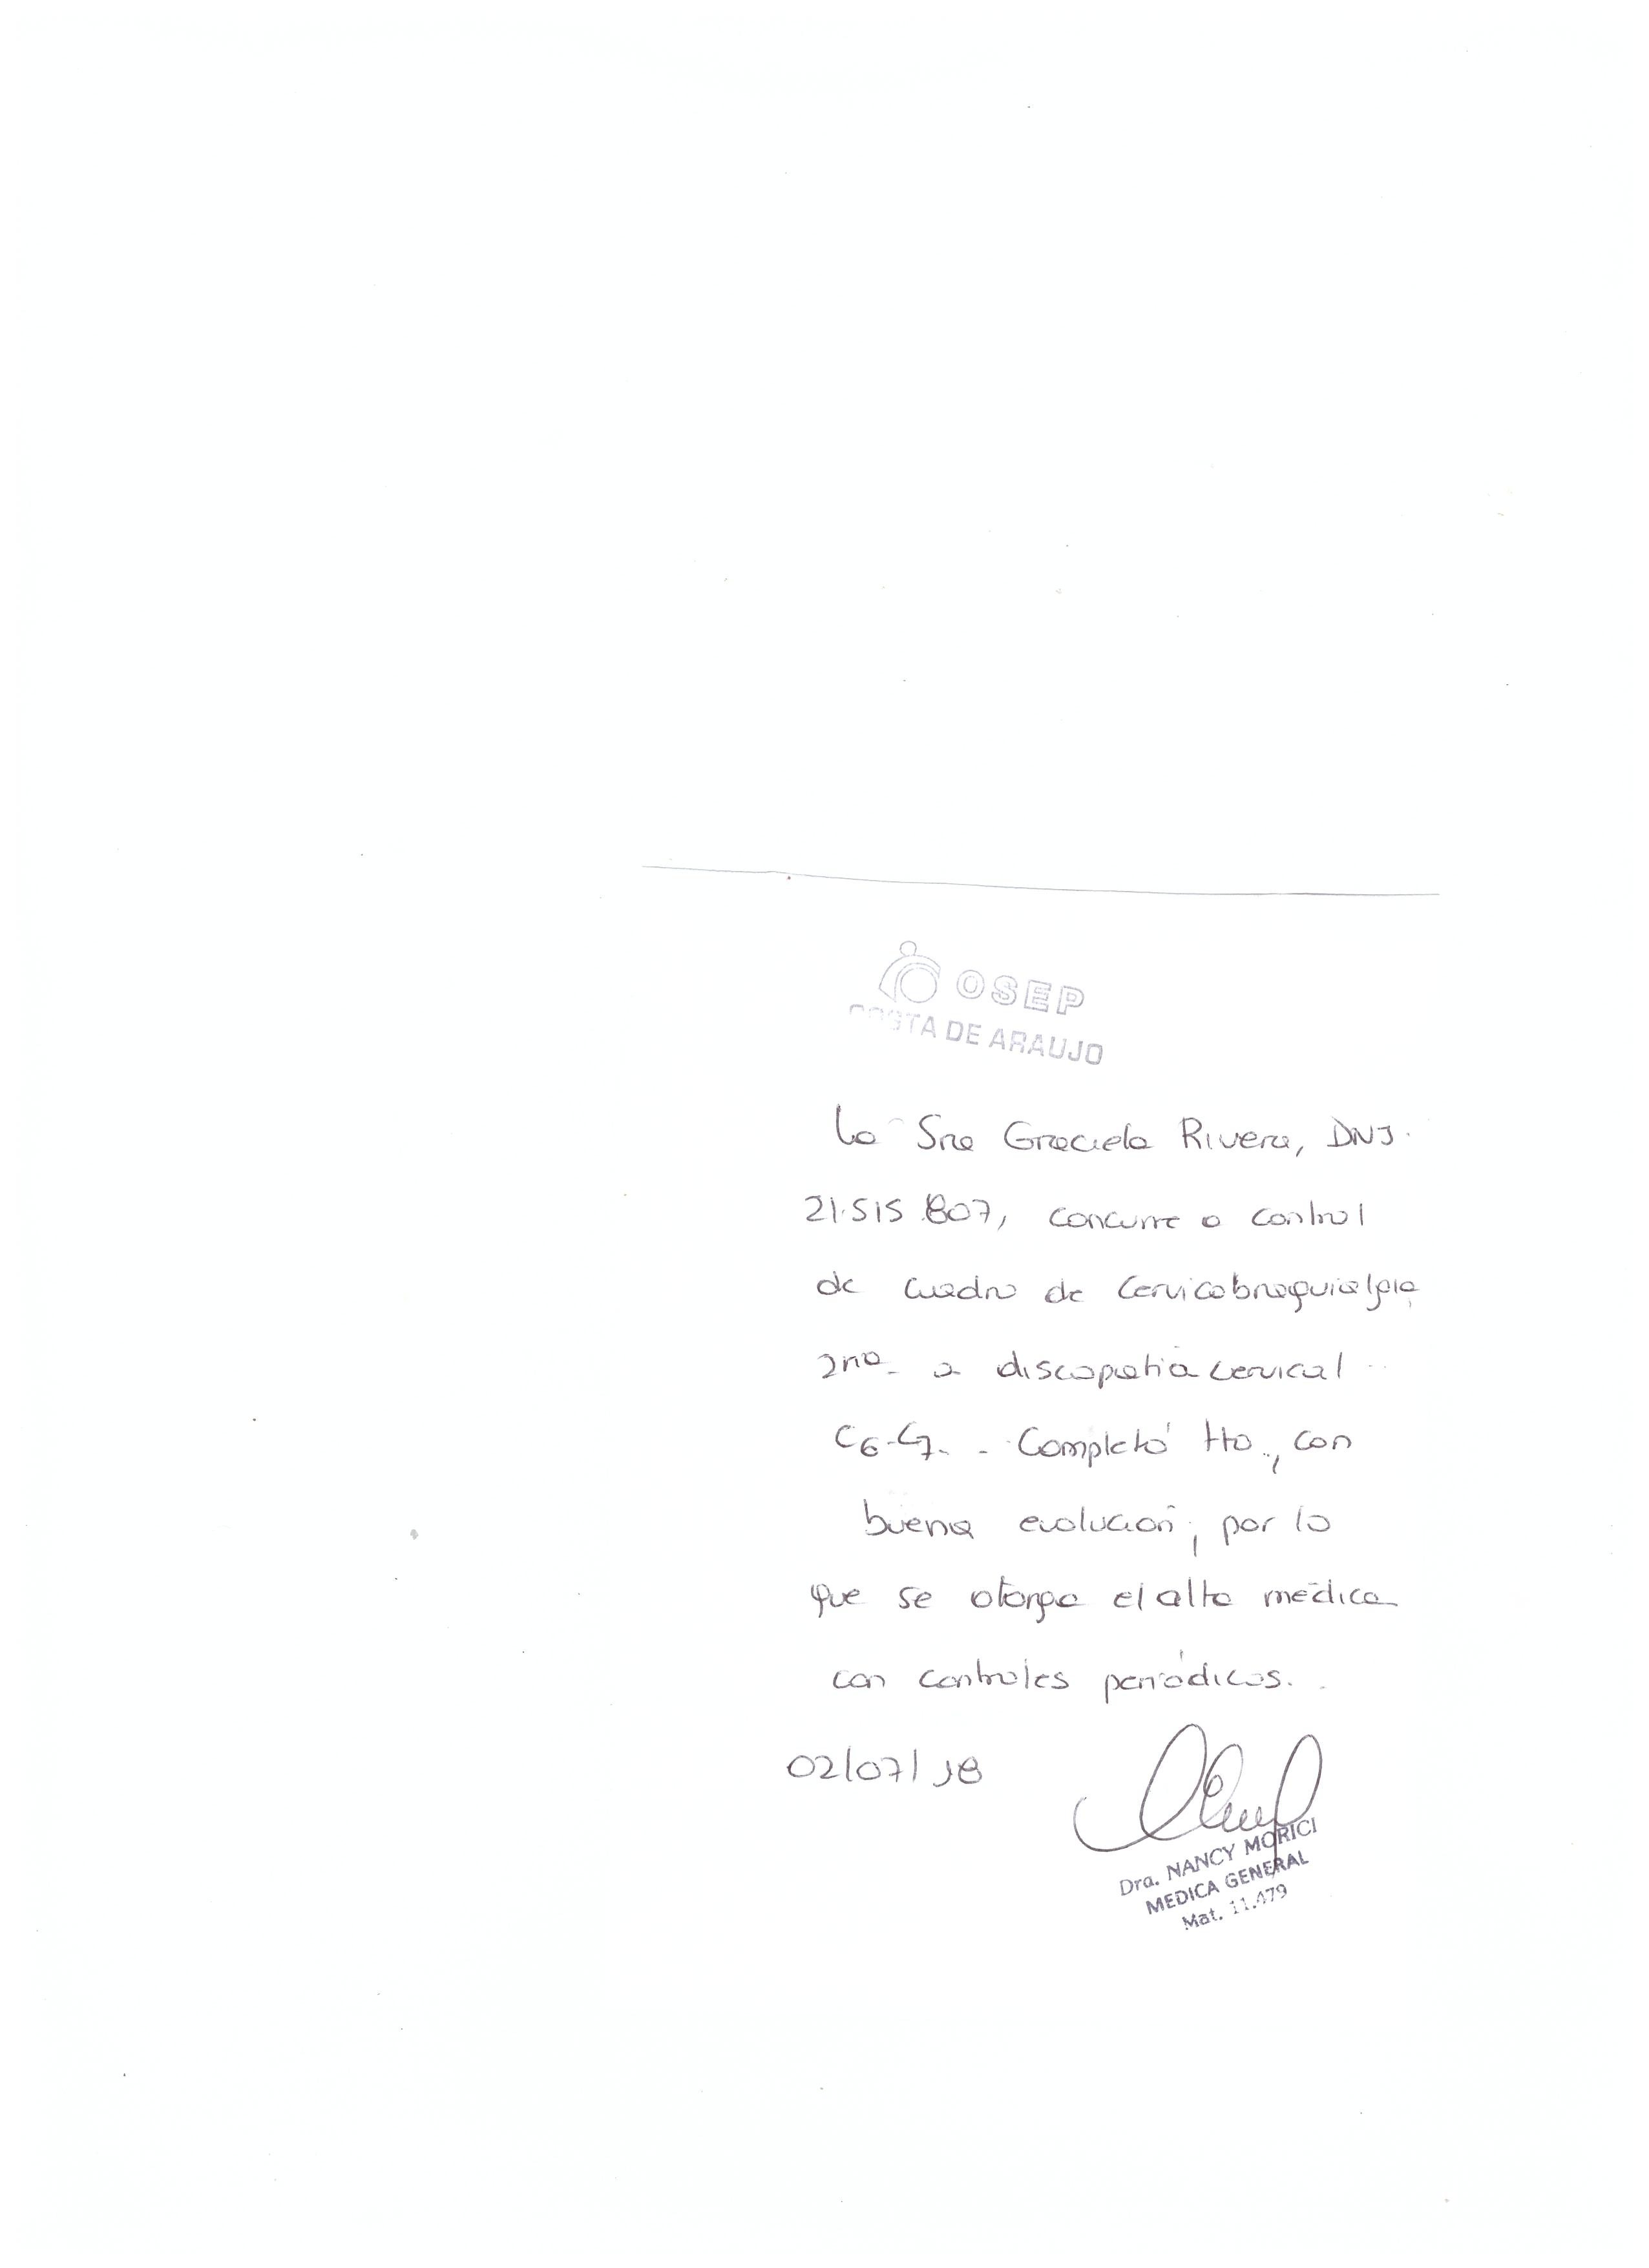 OSEP
COSTA DE ARAUJO
La Sra Graciela Rivera, DNI.
21.515.807, concurre a control
de cuadro de cervicobraquialgia
2rio. a discopatía cervical
C6-C7. - Completó tto., con
buena evolución, por lo
que se otorga el alta médica
con controles periódicos.
02/07/18
Dra. NANCY MORICI
MEDICA GENERAL
Mat. 11.479